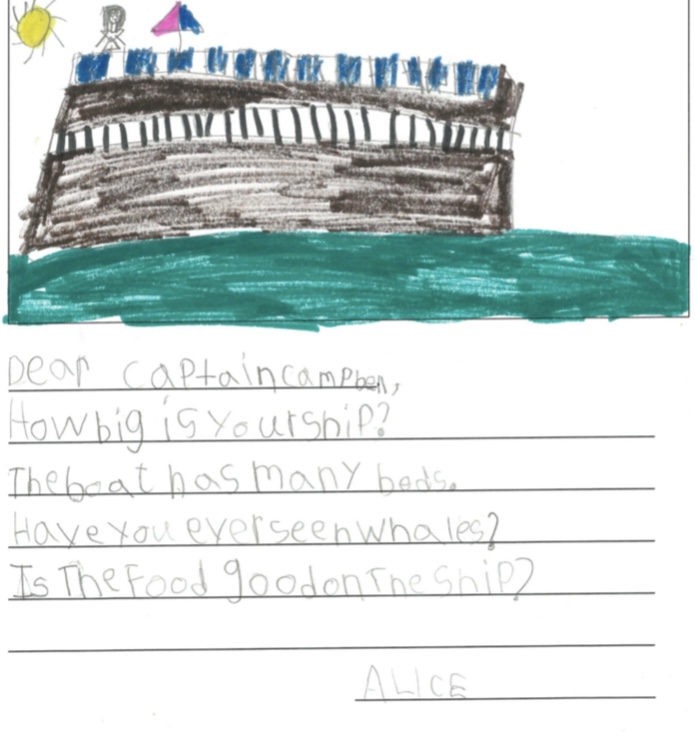 Dear Captain Campbell,
How big is your ship?
The boat has many beds.
Have you ever seen whales?
Is The Food good on The Ship?
ALICE